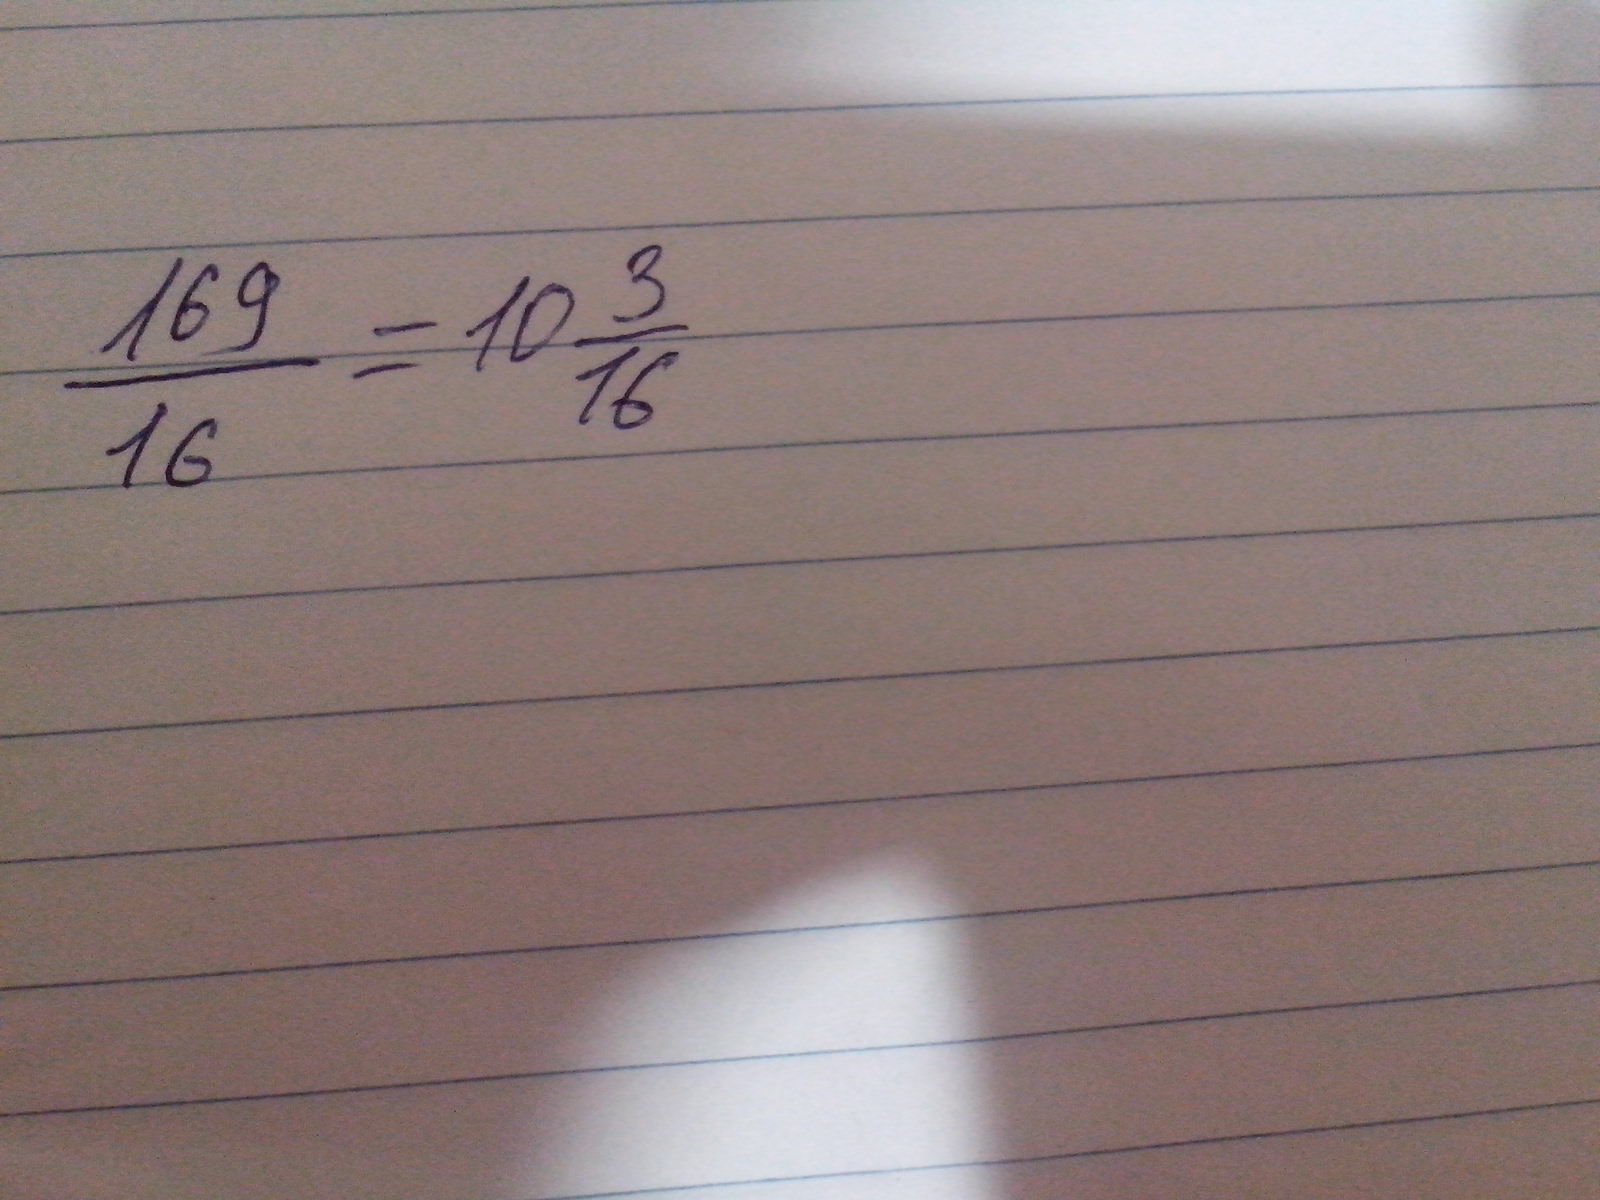 169/16 = 10 3/16